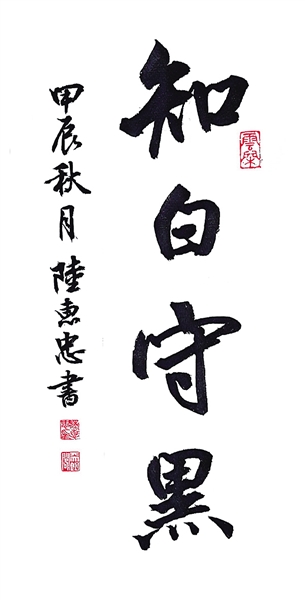 知白守黑
甲辰秋月陸惠忠書